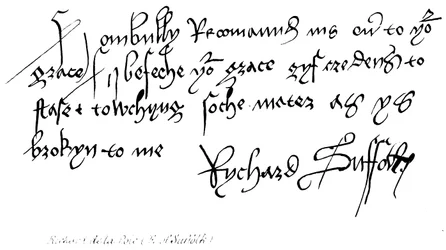 ombully Recomannd me to yor
grace I beseche yor grace gyf credens to
towchyng soche mater as ys
brokyn to me Rychard Suffolk
de la Pole of Suffolk